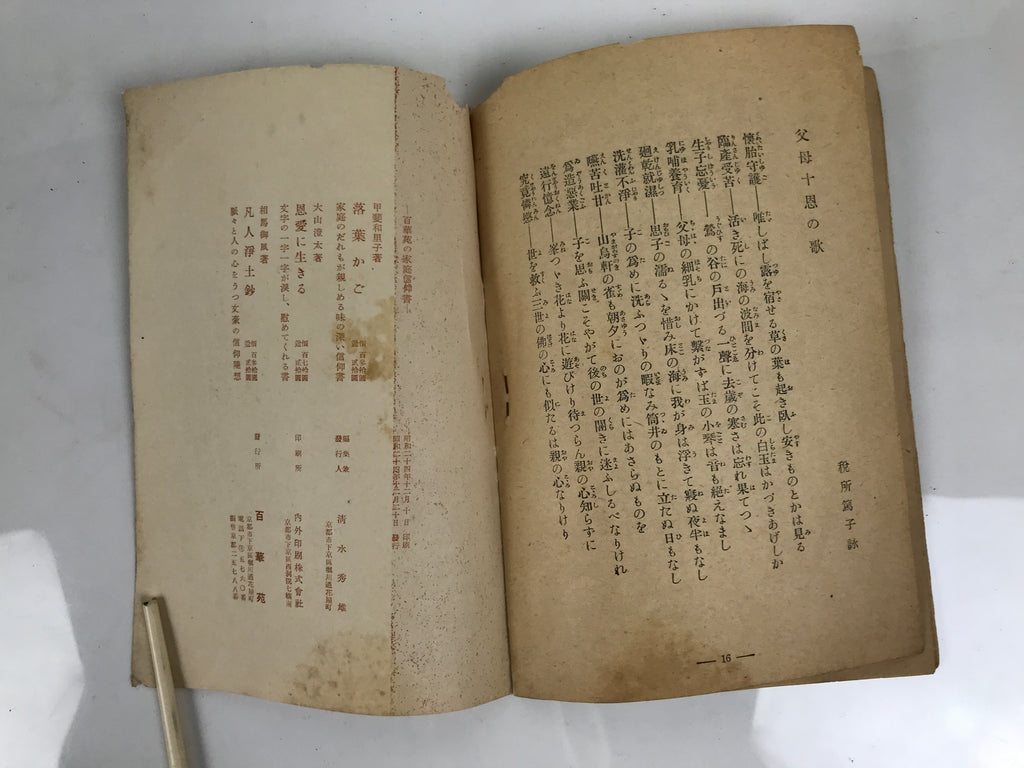 父母十恩の歌
税所篤子詠
懷胎守護——唯しばし露を宿せる草の葉も起き臥し安きものとかは見る
臨產受苦——活き死にの海の波間を分けてこそ此の白玉はかづきあげしか
生子忘憂——鶯の谷の戶出づる一聲に去歲の寒さは忘れ果てつゝ
乳哺養育——父母の細乳にかけて繫がずば玉の小琴は音も絕えなまし
廻乾就濕——思子の濡るゝを惜み床の海に我が身は浮きて寢ぬ夜半もなし
洗灌不淨——子の爲めに洗ふつゞりの暇なみ筒井のもとに立たぬ日もなし
嚥苦吐甘——山烏軒の雀も朝夕におのが爲めにはあさらぬものを
爲造惡業——子を思ふ闇こそやがて後の世の闇きに迷ふしるべなりけれ
遠行憶念——峯つゞき花より花に遊びけり待つらん親の心知らずに
究竟憐愍——世を救ふ三世の佛の心にも似たるは親の心なりけり
— 16 —
—百華苑の家庭信仰書—
甲斐和里子著
落葉かご
家庭のだれもが親しめる味の深い信仰書
大山澄太著
恩愛に生きる
文字の一字一字が淚し、慰めてくれる書
相馬御風著
凡人淨土鈔
脈々と人の心をうつ文豪の信仰隨想
昭和二十四年十一月十日 印刷
昭和二十四年十一月二十日 發行
編集兼發行人 淸水秀雄
京都市下京區堀川通花屋町
印刷所 內外印刷株式會社
京都市下京區西洞院七條南
發行所 百華苑
京都市下京區堀川通花屋町